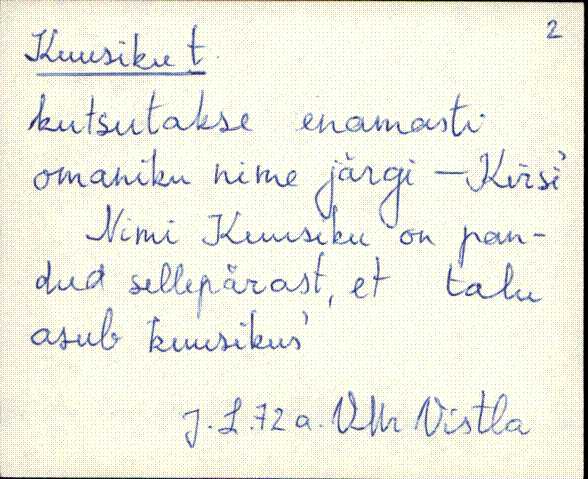 2
Kuusiku t.
kutsutakse enamasti
omaniku nime järgi – Kirsi
Nimi Kuusiku on pan-
dud sellepärast, et talu
asub kuusikus
J. L. 72 a. VMr Vistla